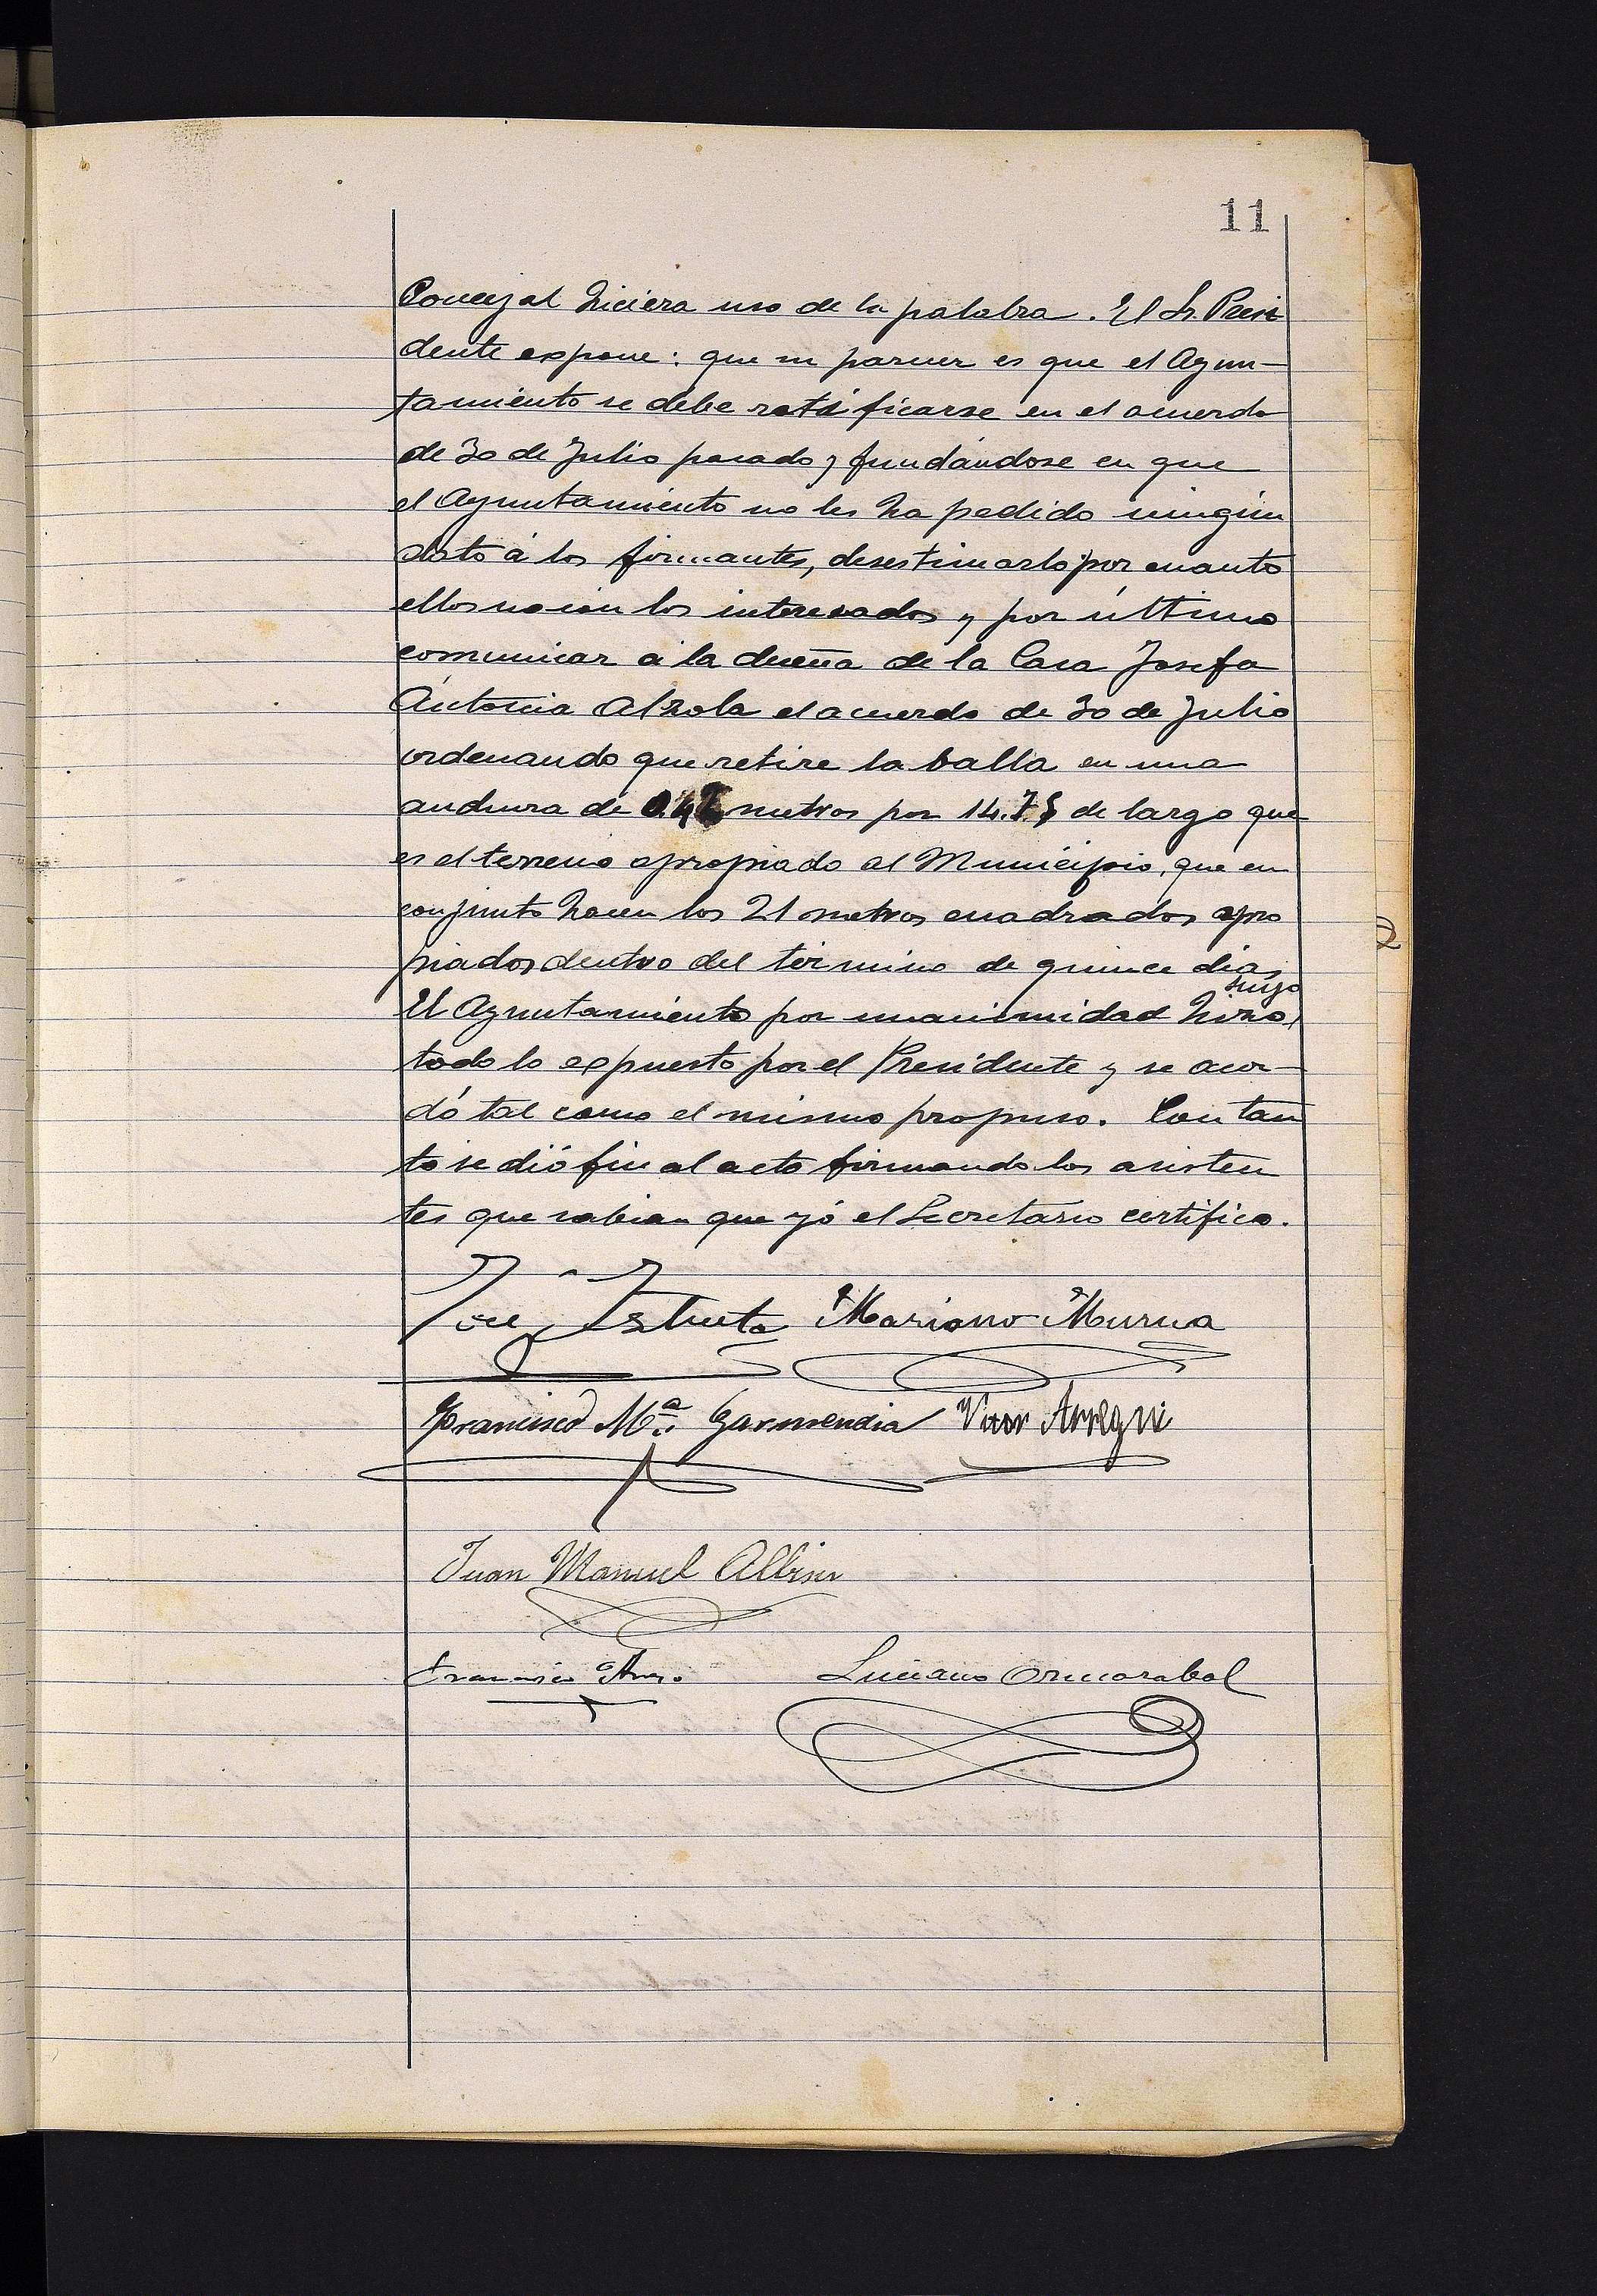 11
Concejal hiciera uso de la palabra. El Sr. Presi
dente expone: que su parecer es que el Ayun-
tamiento se debe ratificarse en el acuerdo
de 30 de Julio pasado y fundándose en que
el Ayuntamiento no les ha pedido ningún
dato á los firmantes, desestimarlo por cuanto
ellos no son los interesados y por último
comunicar a la dueña de la Casa Josefa
Antonia Alzola el acuerdo de 30 de Julio
ordenando que retire la balla en una
anchura de metros por 14.75 de largo que
es el terreno apropiado al Municipio, que en
conjunto hacen los 21 metros cuadrados apro
piados dentro del término de quince dias
suyo
El Ayuntamiento por unanimidad hizo
todo lo expuesto por el Presidente y se acor-
dó tal como el mismo propuso. Con tan
to se dió fin al acto firmando los asisten
tes que sabian que yó el Secretario certifico.
José Mariano Murua
Francisco Mª Garmendia Victor Arregui
Juan Manuel Albisu
Francisco Luciano Ormazabal